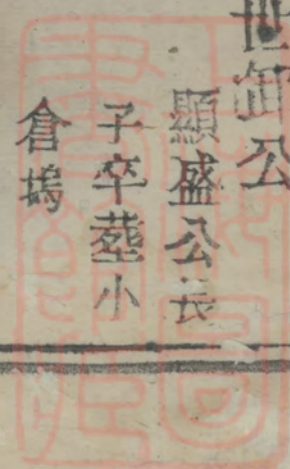 世卸公
顯盛公長
子卒塟小
倉塢